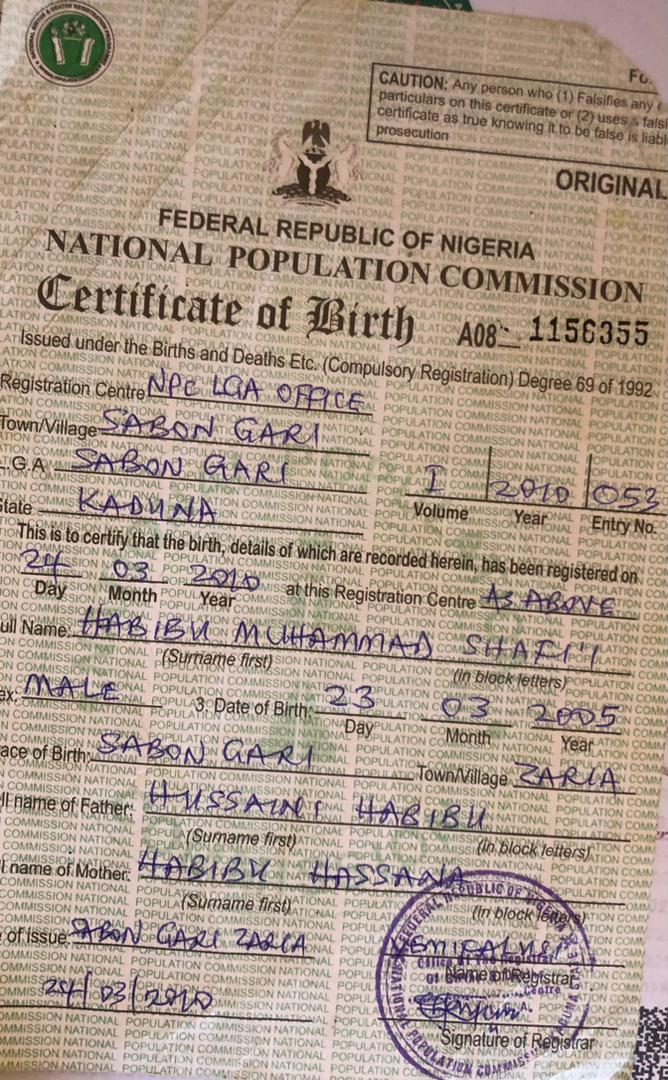 Fo
CAUTION: Any person who (1) Falsifies any
particulars on this certificate or (2) uses a fals
certificate as true knowing it to be false is liabl
prosecution
ORIGINAL
FEDERAL REPUBLIC OF NIGERIA
NATIONAL POPULATION COMMISSION
Certificate of Birth A08 1156355
Issued under the Births and Deaths Etc. (Compulsory Registration) Degree 69 of 1992
Registration Centre NPC LGA OFFICE
Town/Village SABON GARI
L.G.A SABON GARI
I 2010 053
Volume Year Entry No.
State KADUNA
This is to certify that the birth, details of which are recorded herein, has been registered on
24 03 2010 at this Registration Centre AS ABOVE
Day Month Year
ull Name: HABIBU MUHAMMAD SHAFI'I
(Surname first) (In block letters)
ex: MALE 3. Date of Birth: 23 03 2005
Day Month Year
ace of Birth: SABON GARI Town/Village ZARIA
ll name of Father: HUSSAINI HABIBU
(Surname first) (In block letters)
l name of Mother: HABIBU HASSANA
(Surname first) (In block letters)
of Issue: SABON GARI ZARIA
Name of Registrar
24/03/2010
Signature of Registrar